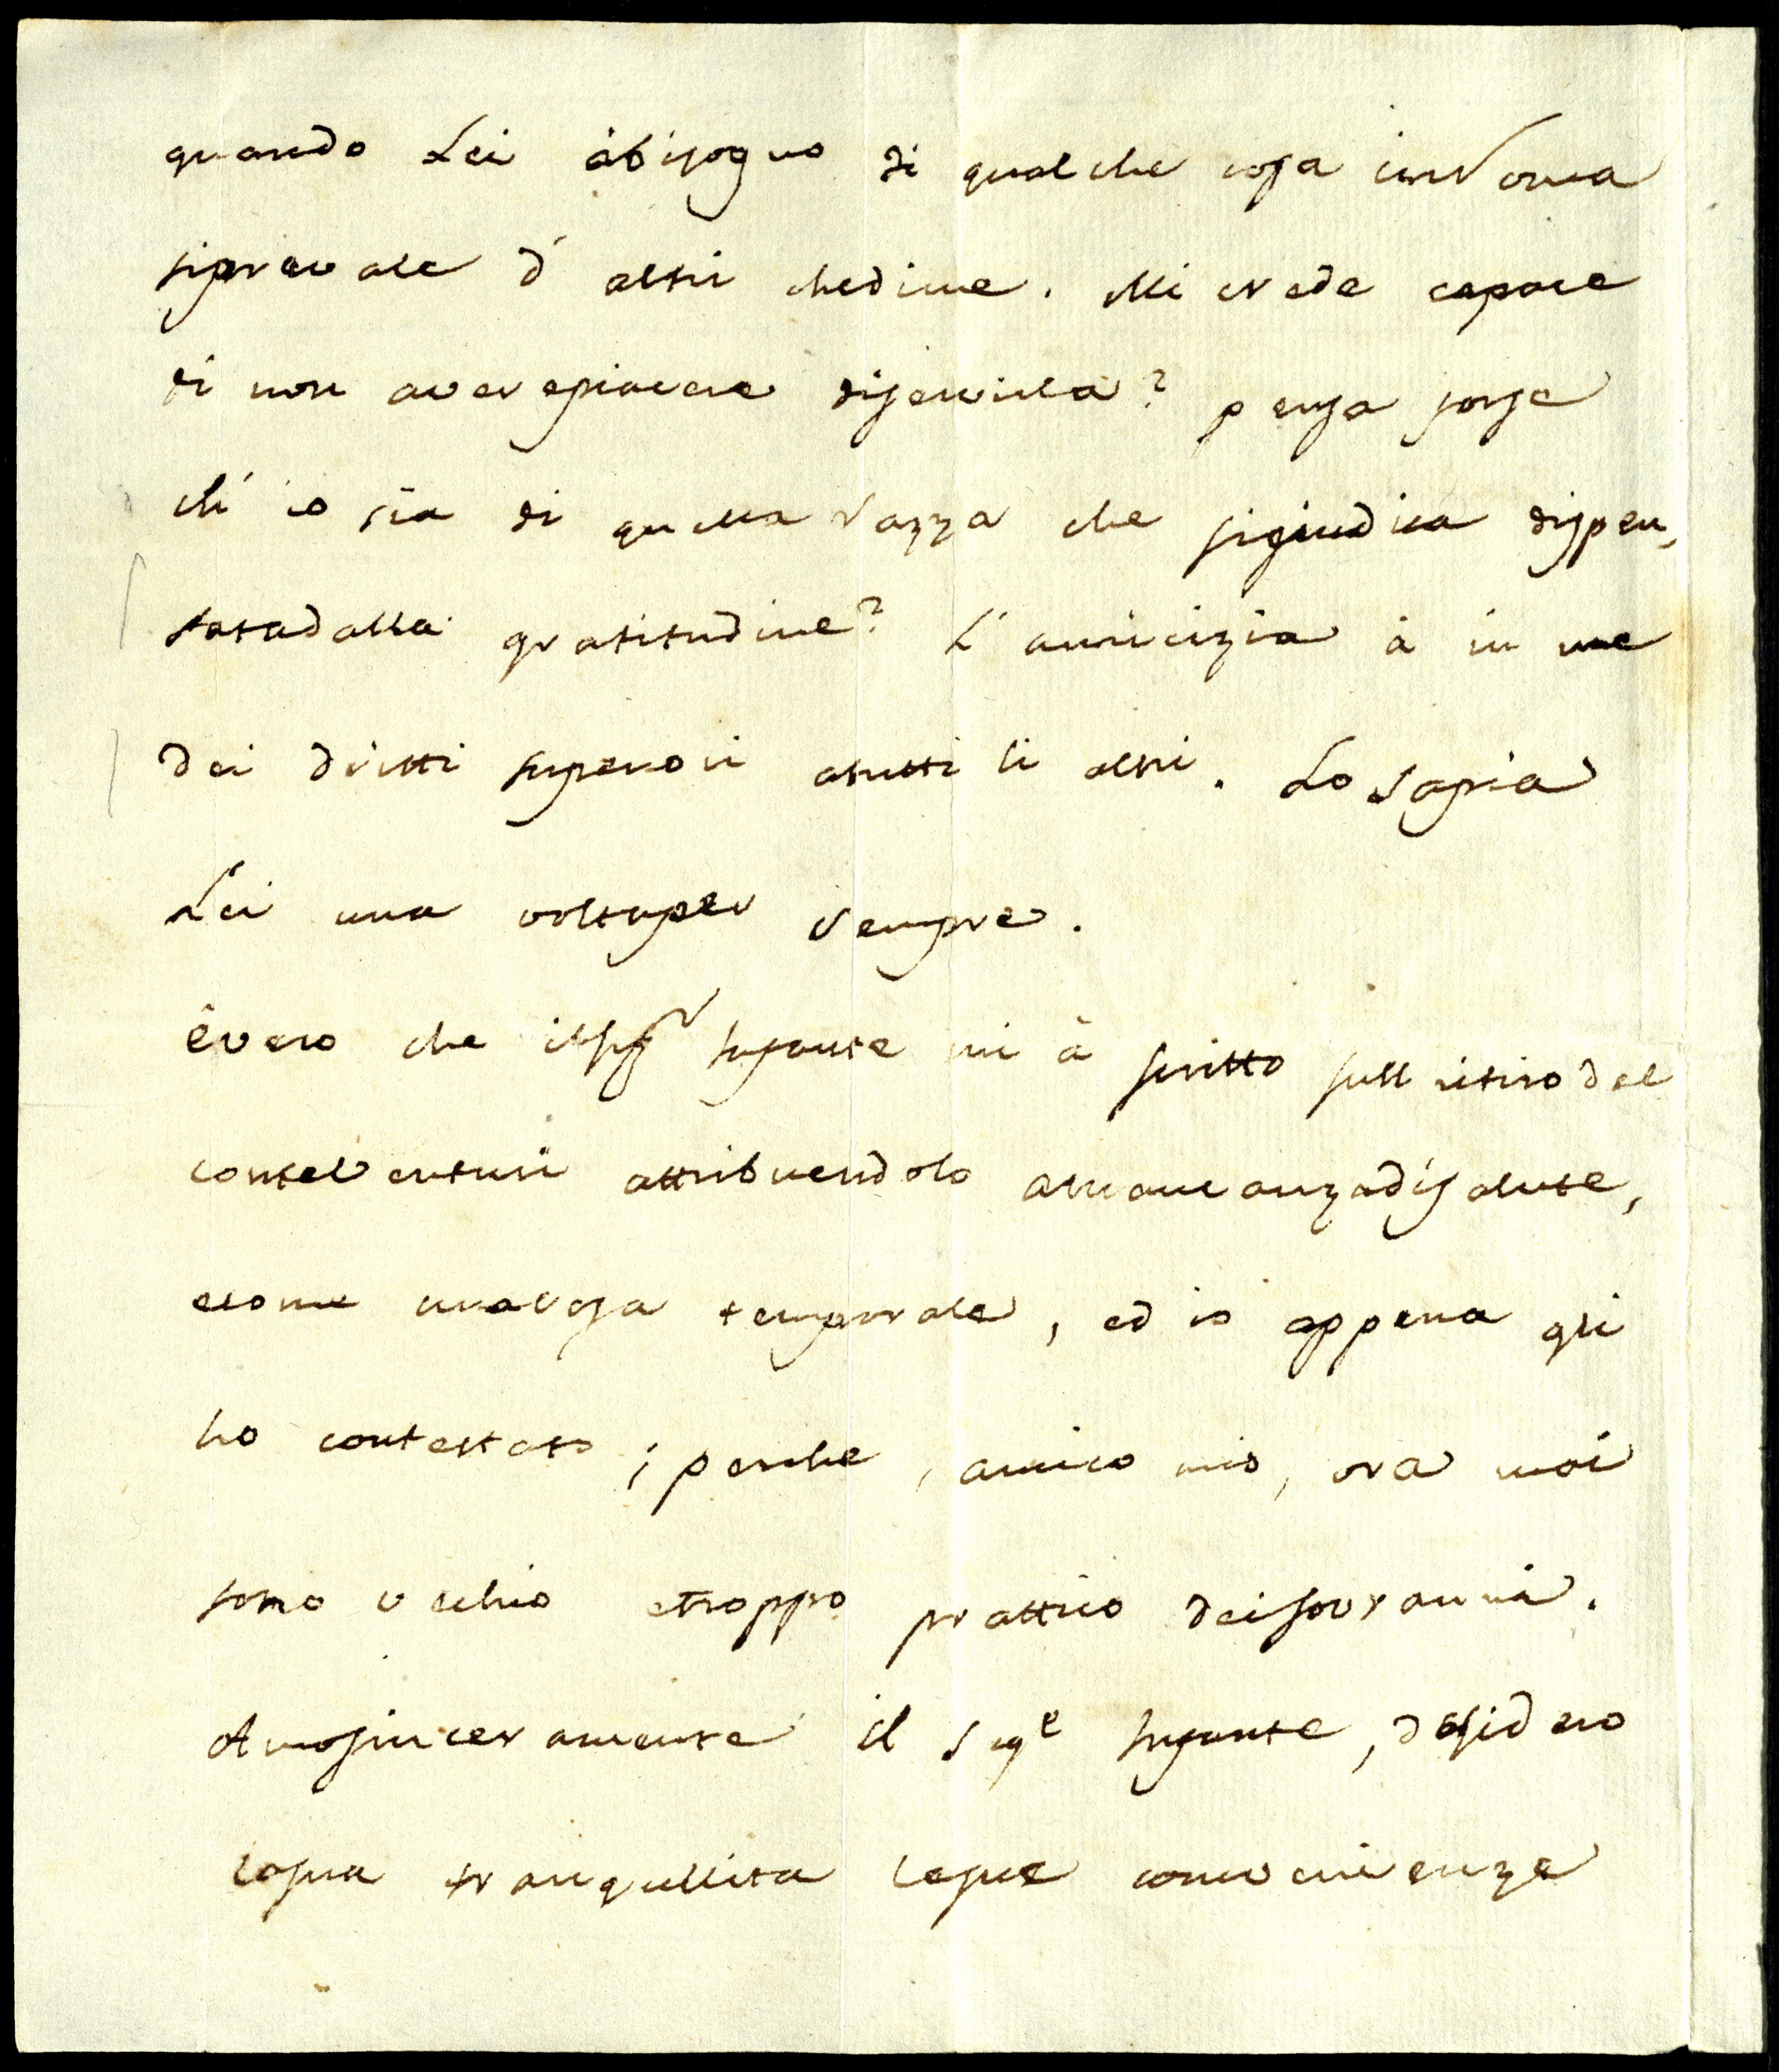 quando Lei àbisogno di qualche cosa inRoma
siprevale d'altri chedime. Mi crede capace
di non averepiacere diservirla? pensa forse
ch'io sia di quella razza che sigiudica dispen,
satadalla gratitudine? L'amicizia à in me
dei dritti superiori atutti li altri. Lo sapia
Lei una voltaper sempre.
èvero che ilSigr Infante mi à scritto sull ritirodel
conteVenturi attribuendolo amancanzadisalute,
ecome unacosa temporale, ed io appena gli
ho contestato; perche, amico mio, ora mai
sono vechio etroppo prattico deisovranni.
Amosinceramente il Sige Infante, desidero
lasua tranqullita lesue convenienze